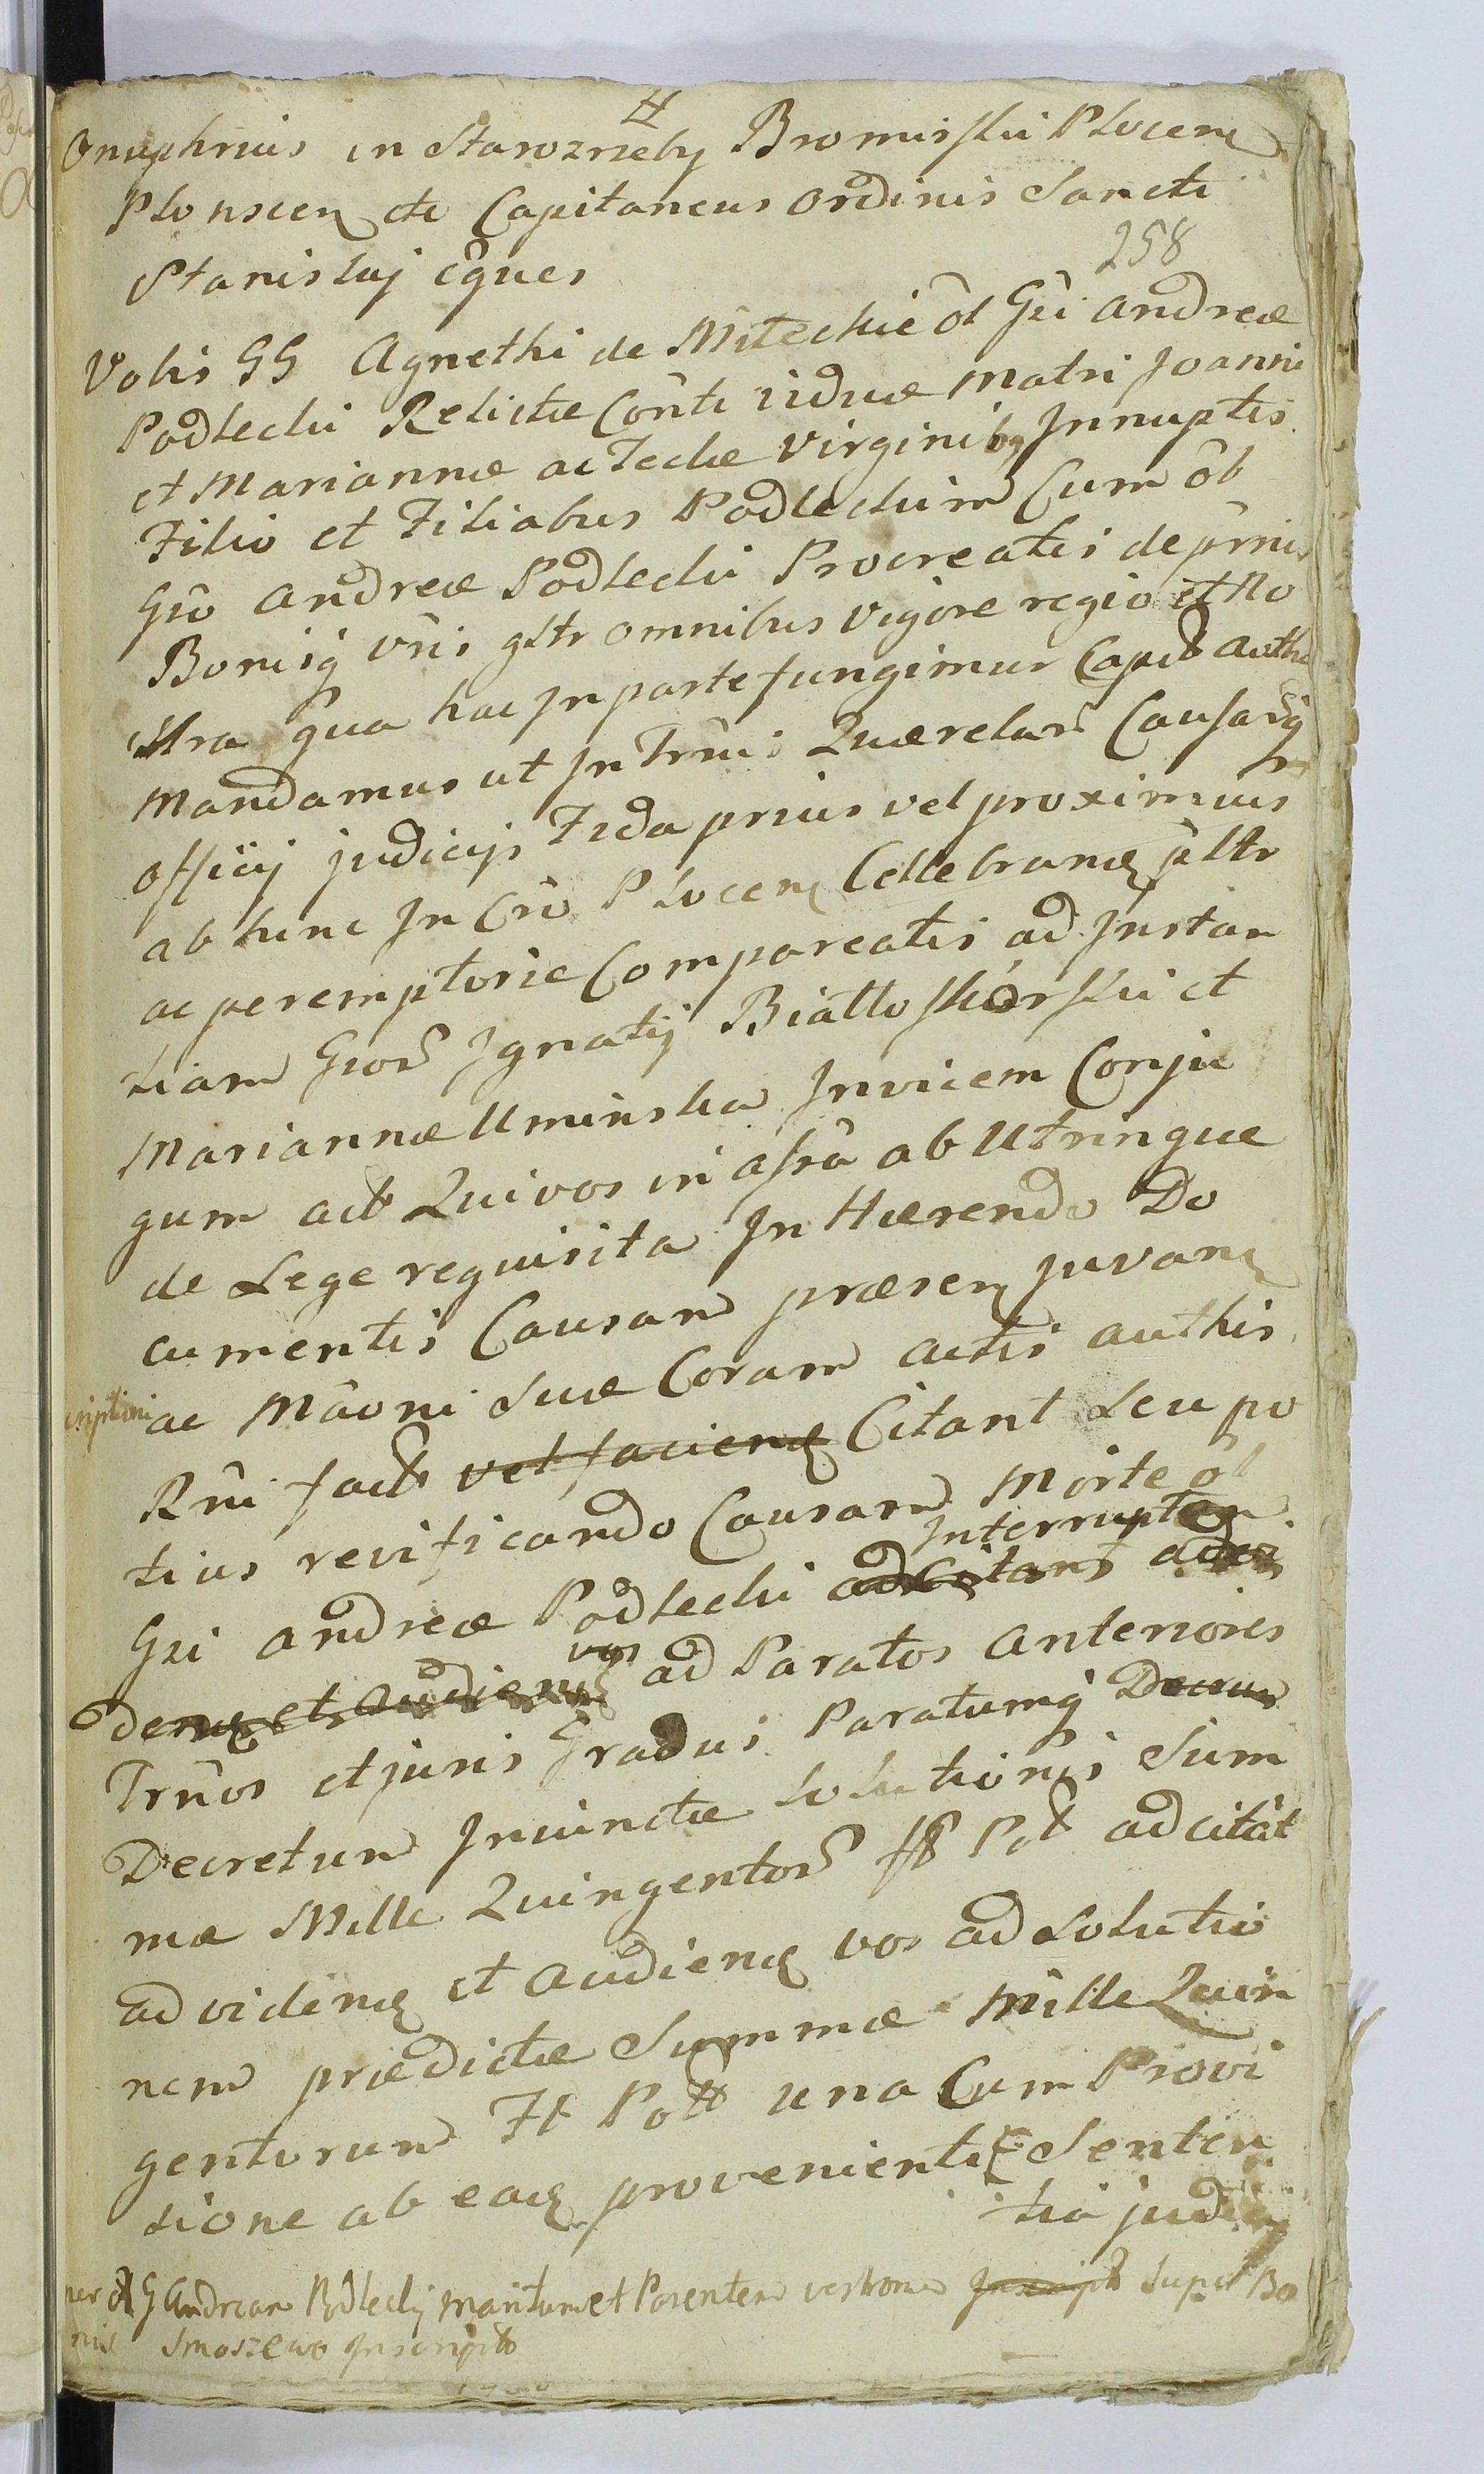 Onuphrius in Starozreby Bromirski Plocen
Plonscen etc Capitaneus Ordinis Sancti
Stanislaj Eques
258
Vobis GG Agnethi de Mitechie ol Gsi Andreæ
Podlecki Relictæ Conti viduæ Matri Joanni
et Mariannæ ac Teclæ Virginibq Innuptis
Filio et Filiabus Podleckim Cum ol
Gso Andreæ Podlecki Procreatis de prniis
Bonisq vris gltr omnibus Vigore regio et No
stra qua hac In parte fungimur Captt autho
Mandamus ut In Trmis Quærelarum Causarq
officij judicijs Feda prius vel proximius
ab hinc In Cro Plocen Cellebrand pltr
ac peremptorie Compareatis ad Instan
tiam Gsor Ignatij Biallo skorski et
Mariannæ Uminska Invicem Conju
gum act Qui vos in assã ab Utrinque
de Lege requisita In Hærendo Do
cumentis Causam præsen juvan
criptioni ac Mãoni Suæ Coram actis authis
Rni fact vel faciend Citant Seu po
tius revificando Causam Morte ol
Interruptam
Gsi Andreæ Podlecki adcitant ad
dend et audiend vos ad Paratos Anteriores
Trnos et juris Gradus Paratumq
Decretum Injunctæ Solutionis Sum
mæ Mille Quingentor ff Pol ad citãt
ad videnq et Audienq vos ad Solutio
nem prædictæ Summæ Mille Quin
gentorum Ff Pott una Cum Provi
sione ab eaq provenienti Senten
tia judic
per ol G Andream Podlecki maritum et Parentem vestrum Inscript Super Bo
nis Smoszewo Inscript